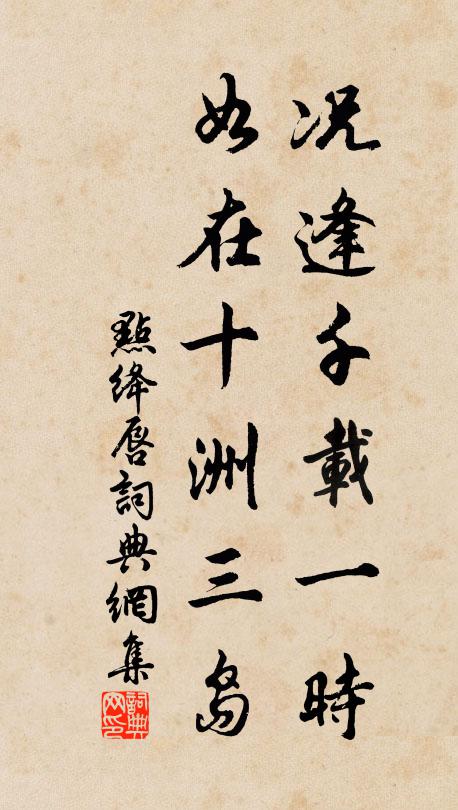 况逢千載一時
如在十洲三島
點絳唇詞典網集
詞典网印